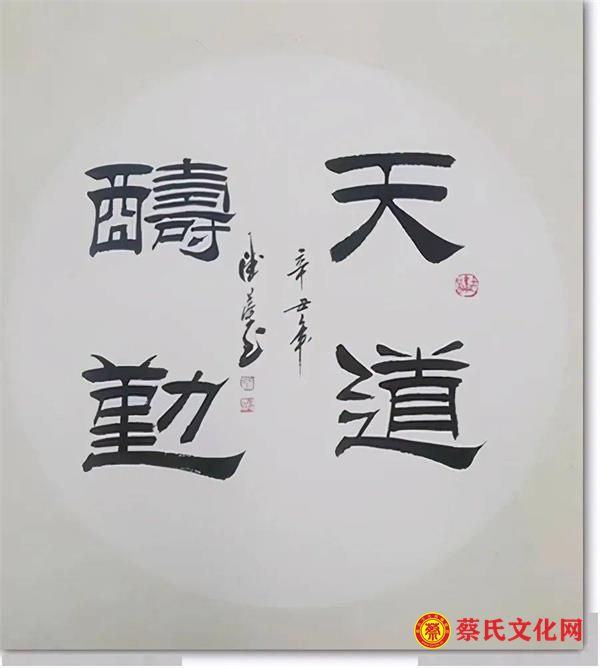 天道
醻勤
辛丑年
蔡氏文化网